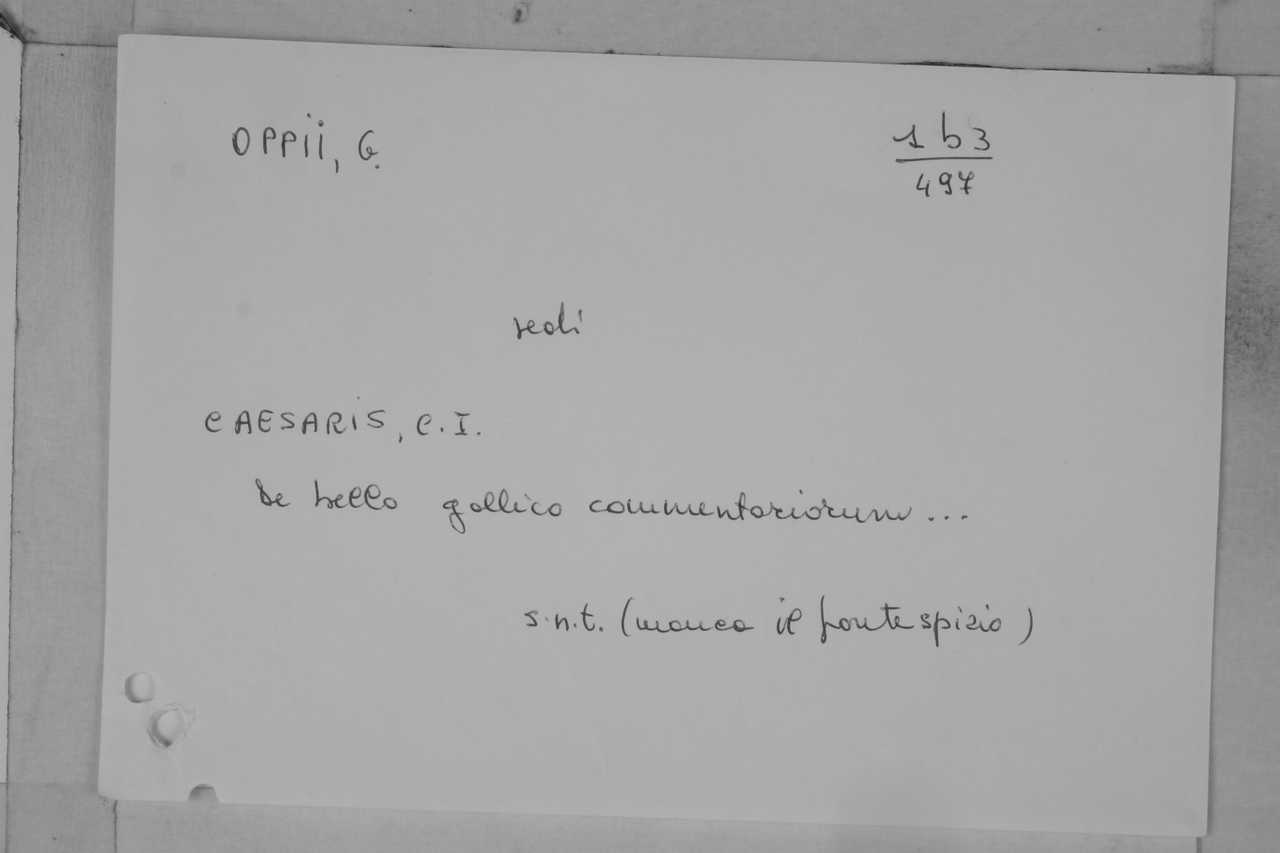 OPPII, G.
1 b 3
497
vedi
CAESARIS, C. I.
De bello gallico commentariorum...
s.n.t. (manca il frontespizio)